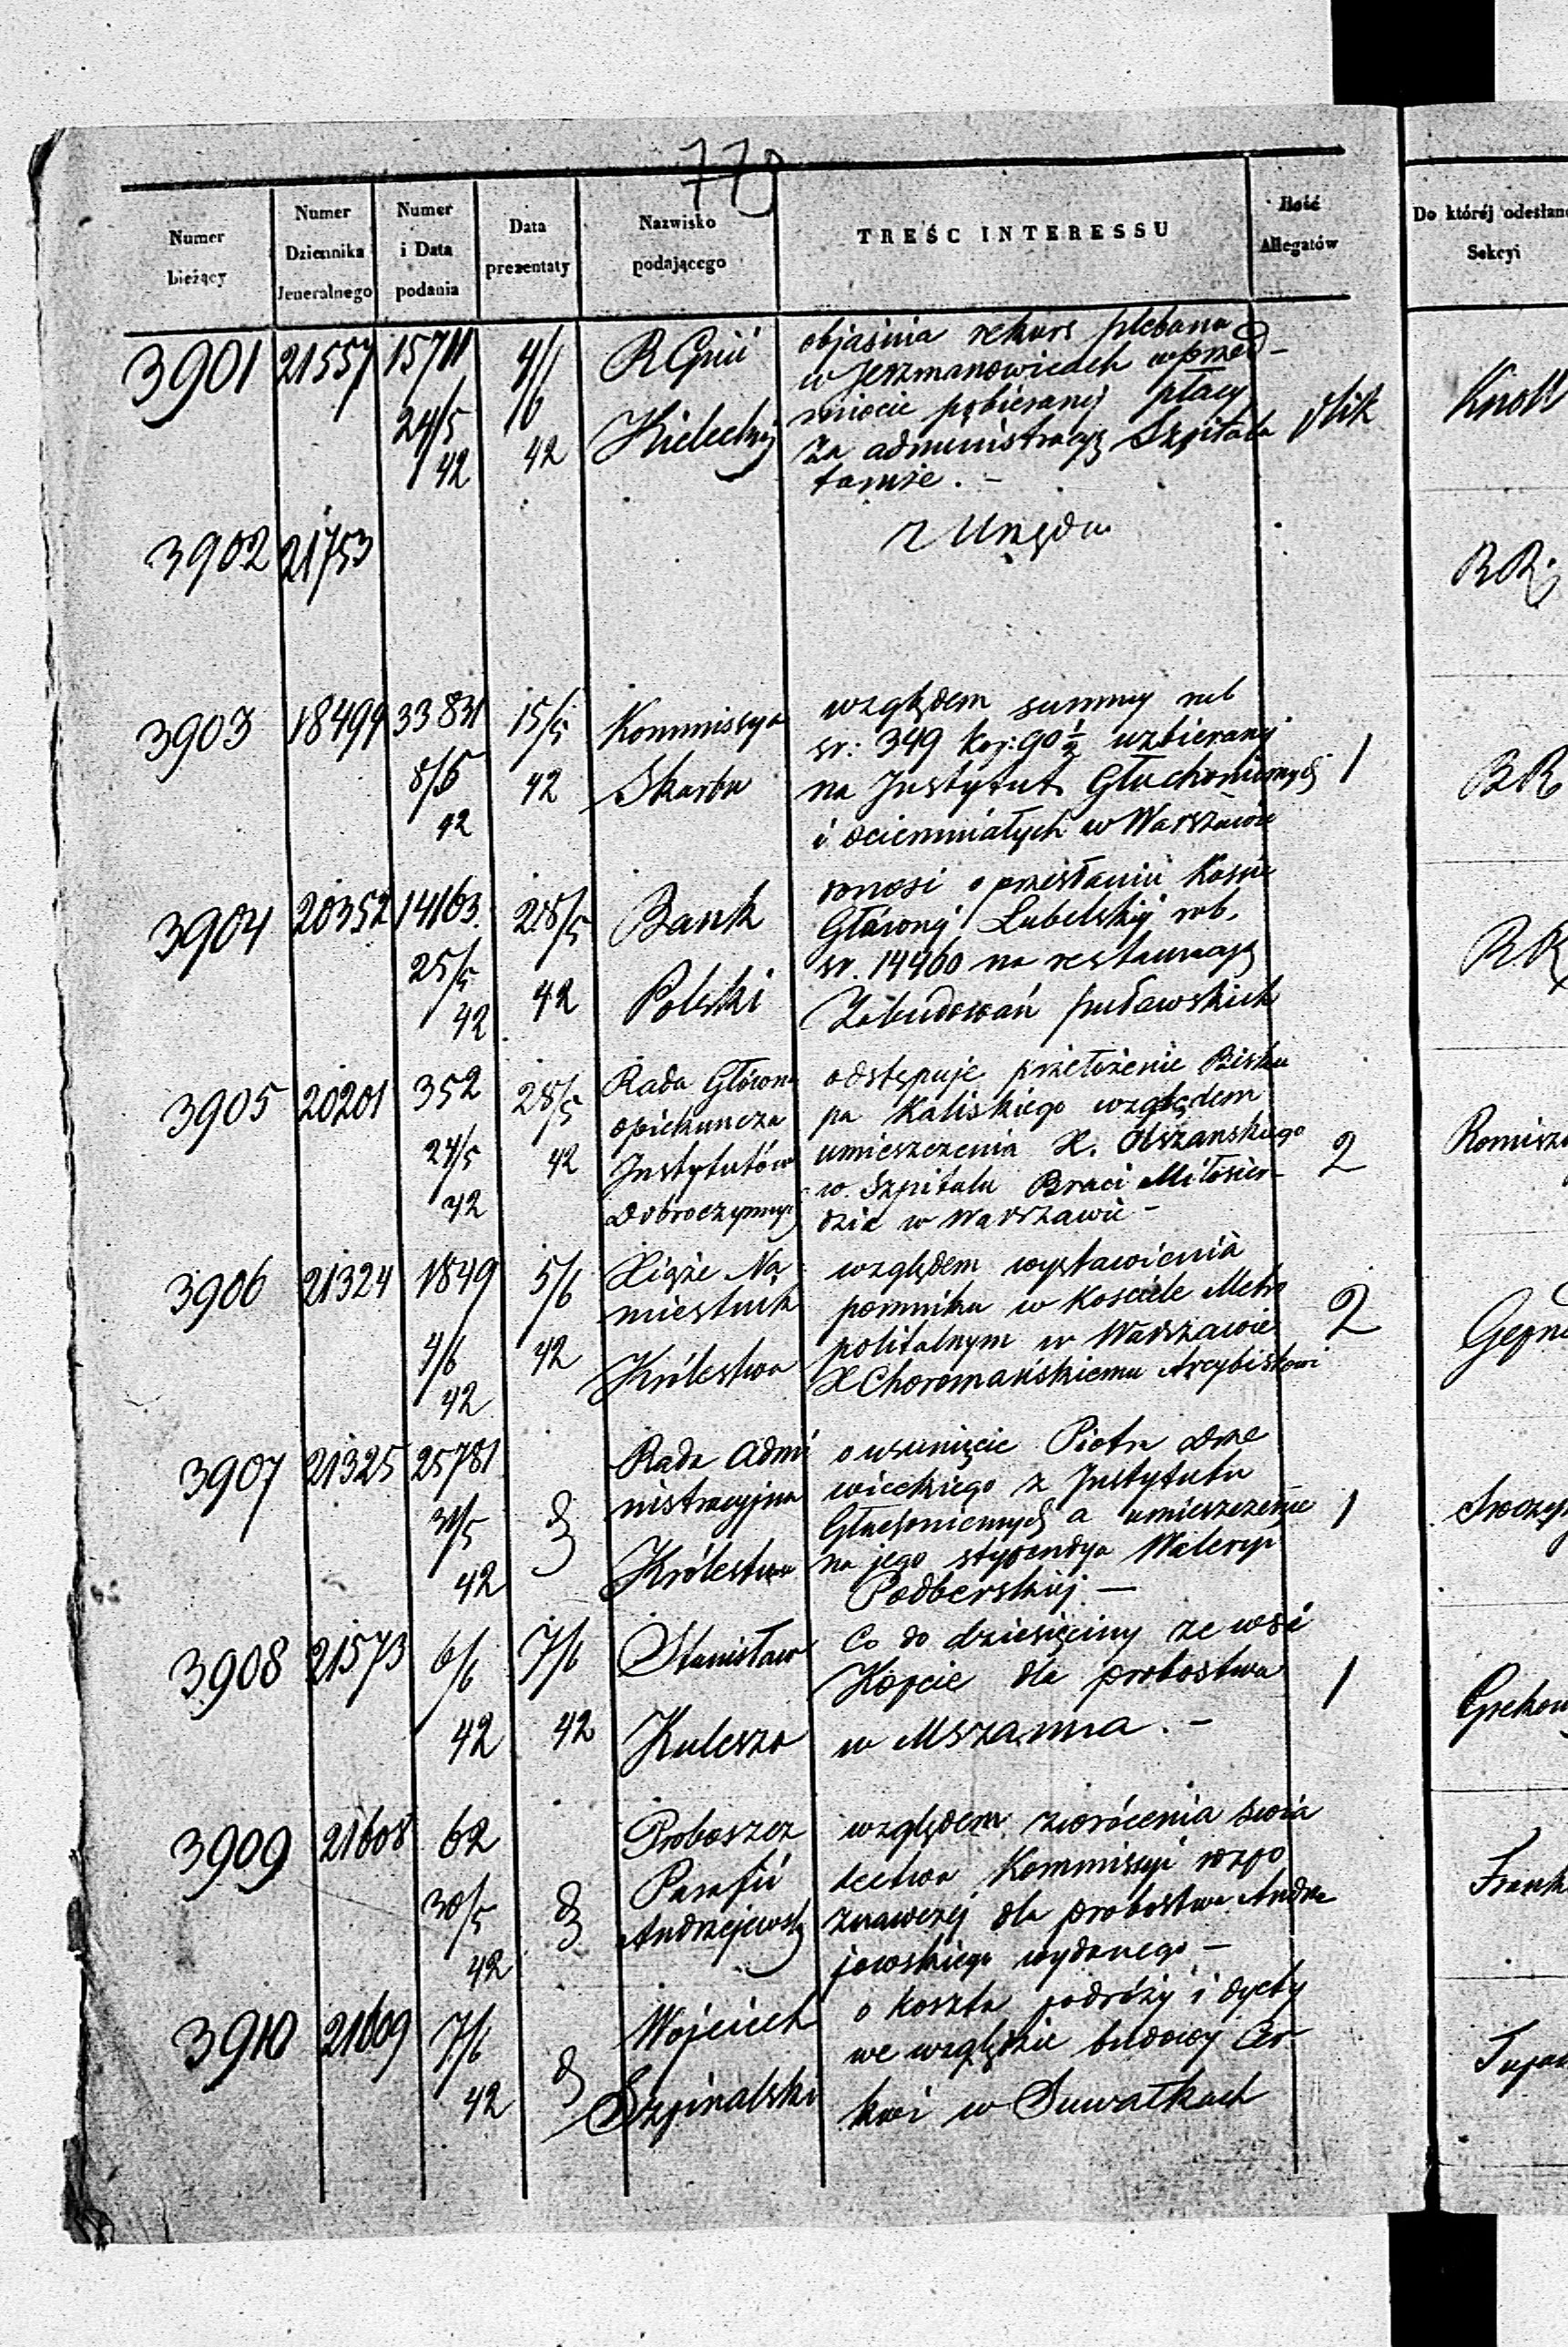 779
Numer bieżący
Numer Dziennika Jeneralnego
Numer i Data podania
Data prezentaty
Nazwisko podającego
TREŚĆ INTERESSU
Ilość Allegatów
Do któréj odesłan
Sekcyi
3901 21557 15711 24/5 42 4/6 42
R Gnii
Kieleckiej
objaśnia rekurs plebana
w Jerzmanowicach w przed-
miocie pobieranej płacy
za administracyą Szpitala
tamże. -
plik
Knoll
3902 21753
z Urzędu
RR.
3903 18499 33831 8/5 42 15/5 42
Kommissya
Skarbu
względem summy rub
sr: 349 kop: 90 ½ uzbieranej
na Instytut Głuchoniemych
i ociemniałych w Warszawie
1
BR
3904 20352 14163. 25/5 42 28/5 42
Bank
Polski
donosi o przesłaniu Kassie
Głównej Lubelskiej rub.
sr. 14460 na restauracyą
Zabudowań puławskich
RR
3905 20201 352 24/5 42 28/5 42
Rada Główna
opiekuncza
Instytutów
Dobroczynnych
odstępuje przełożenie Bisku
pa Kaliskiego względem
umieszczenia X. Olszanskiego
w Szpitalu Braci Miłosier-
dzia w Warszawie -
2
Romisz
3906 21324 1849 4/6 42 5/6 42
Xiąże Na
miestnik
Królestwa
względem wystawienia
pomnika w Kosciele Metro
politalnym w Warszawie
X Choromańskiemu Arcybiskowi
2
3907 21325 25781 31/5 42
Rada Admi
nistracyjna
Królestwa
o usunięcie Piotra Drze
wieckiego z Instytutu
Głuchoniemych a umieszczenie
na jego stypendya Waleryi
Podberskiej —
1
3908 21573 6/6 42 7/6 42
Stanisław
Kulesza
Co do dziesięciny ze wsi
Kopcie dla probostwa
w Mszanna. -
1
3909 21608 62 30/5 42
Proboszcz
Parafii
Andrzejewskiej
względem zwrócenia swia
dectwa Kommissyi rozpo
znawczej dla probostwa Andrze
jewskiego wydanego -
Frank
3910 21609 7/6 42
Wojciech
Szpinalski
o koszta podróży i dyety
we względzie budowy Cer
kwi w Suwałkach